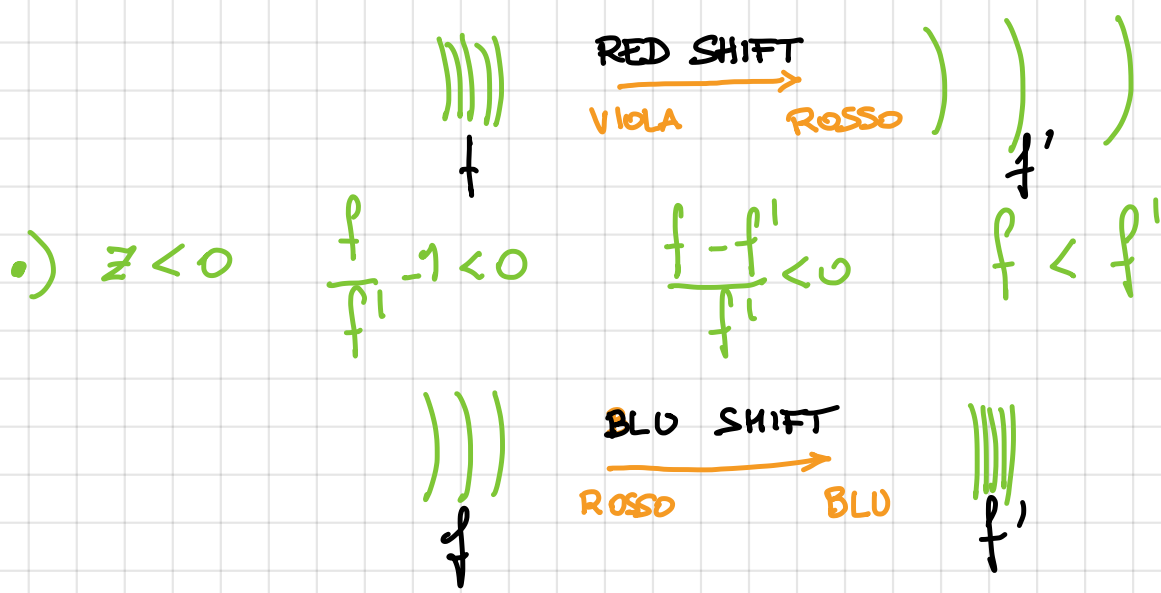 RED SHIFT
VIOLA ROSSO
f f'
•) z < 0 f/f' - 1 < 0 (f - f')/f' < 0 f < f'
BLU SHIFT
ROSSO BLU
f f'